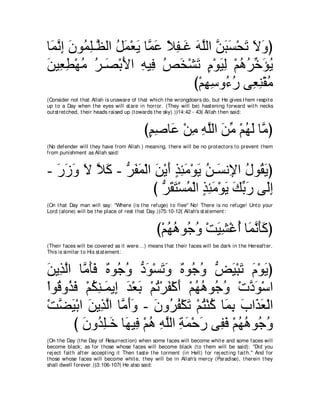 (وَلاَ تَحْسَبَنَّ اللَّهَ غَـفِلاً عَمَّا يَعْمَلُ الظَّـلِمُونَ إِنَّمَا
يُؤَخِّرُهُمْ لِيَوْمٍ تَشْخَصُ فِيهِ الأَبْصَـرُ مُهْطِعِينَ
مُقْنِعِى رُءُوسِهِمْ)
(Consider not that Allah is unaware of that which the wrongdoers do, but He gives them respite
up to a Day when the eyes will stare in horror. (They will be) hastening forward with necks
outstretched, their heads raised up (towards the sky). ﴿)14:42 - 43( Allah then said:
(مَّا لَهُمْ مِّنَ اللَّهِ مِنْ عَاصِمٍ)
(No defender will they have from Allah.) meaning, there will be no protectors to prevent them
from punishment as Allah said:
(يَقُولُ الإِنسَـنُ يَوْمَئِذٍ أَيْنَ الْمَفَرُّ - كَلاَّ لاَ وَزَرَ -
إِلَى رَبِّكَ يَوْمَئِذٍ الْمُسْتَقَرُّ )
(On that Day man will say: "Where (is the refuge) to flee'' No! There is no refuge! Unto your
Lord (alone) will be the place of rest that Day.)﴿75:10-12( Allah's statement:
(كَأَنَّمَا أُغْشِيَتْ وُجُوهُهُمْ)
(Their faces will be covered as it were. ..) means that their faces will be dark in the Hereafter.
This is similar to His statement:
(يَوْمَ تَبْيَضُّ وُجُوهٌ وَتَسْوَدُّ وُجُوهٌ فَأَمَّا الَّذِينَ
اسْوَدَّتْ وُجُوهُهُمْ أَكْفَرْتُمْ بَعْدَ إِيمَـنِكُمْ فَذُوقُواْ
الْعَذَابَ بِمَا كُنْتُمْ تَكْفُرُونَ - وَأَمَّا الَّذِينَ ابْيَضَّتْ
وُجُوهُهُمْ فَفِى رَحْمَةِ اللَّهِ هُمْ فِيهَا خَـلِدُونَ )
(On the Day (the Day of Resurrection) when some faces will become white and some faces will
become black; as for those whose faces will become black (to them will be said): "Did you
reject faith after accepting it Then taste the torment (in Hell) for rejecting faith." And for
those whose faces will become white, they will be in Allah's mercy (Paradise), therein they
shall dwell forever.)﴿3:106-107( He also said: